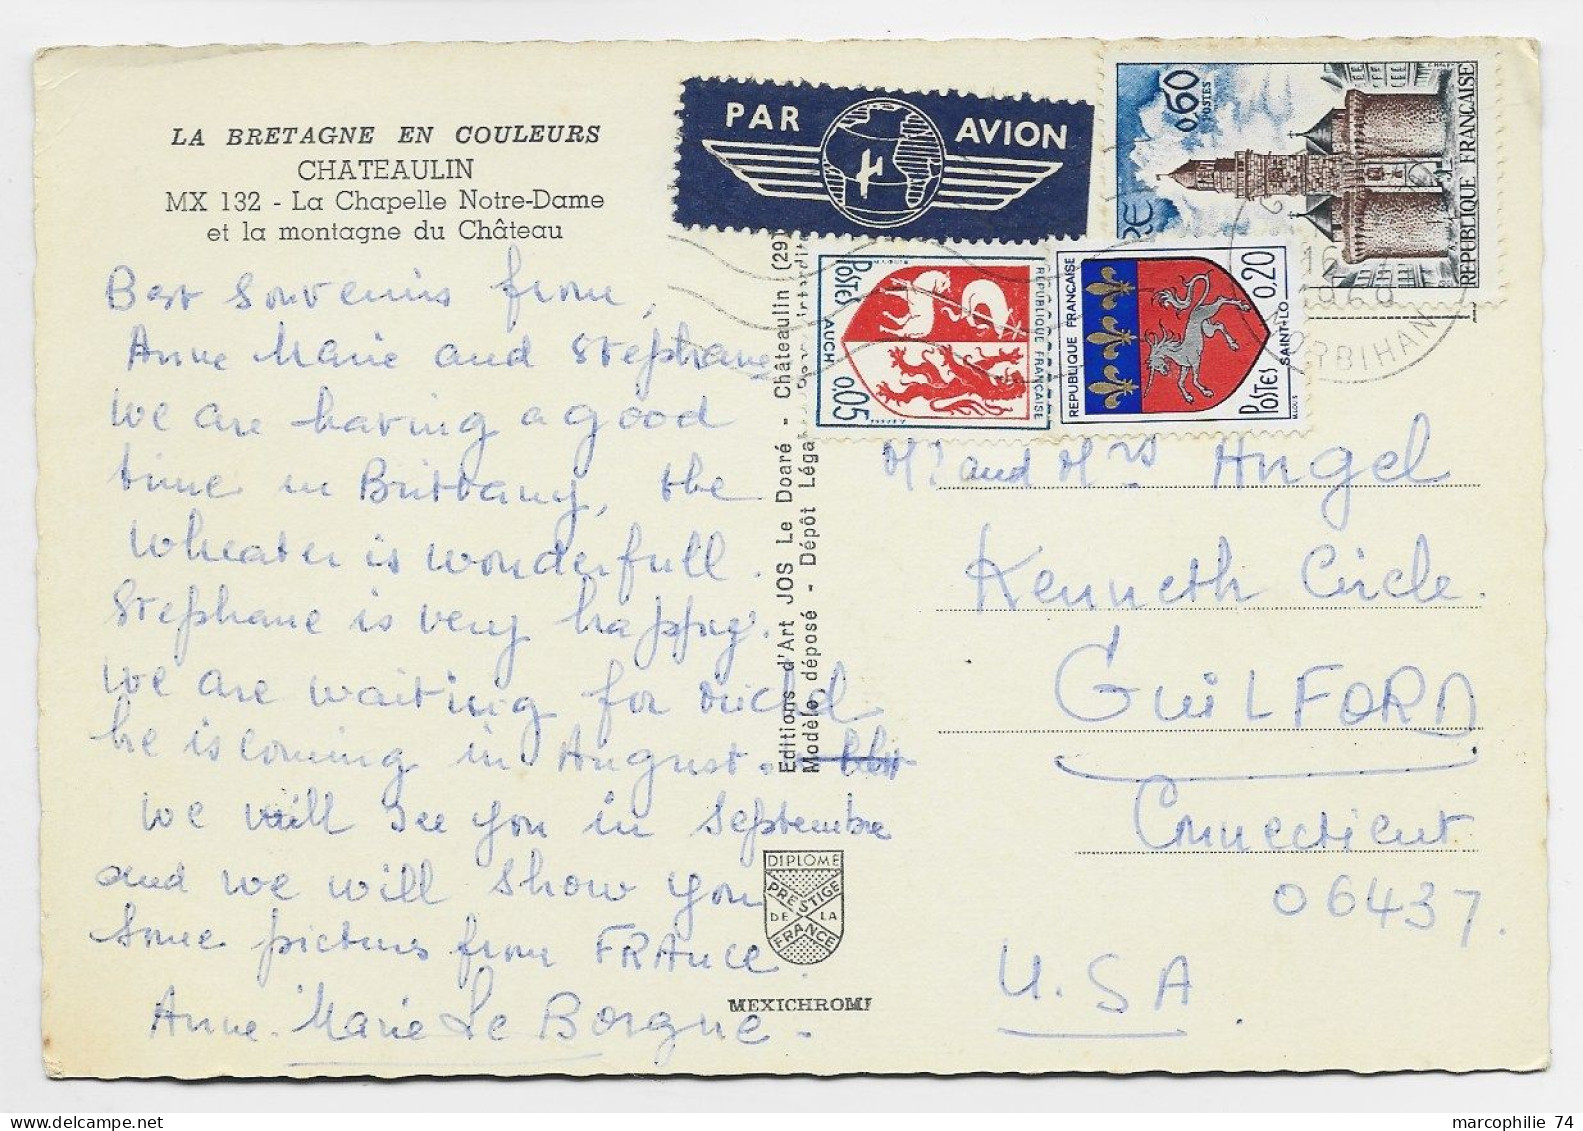 LA BRETAGNE EN COULEURS
CHATEAULIN
MX 132 - La Chapelle Notre-Dame
et la montagne du Château
Best Souvenirs from,
Anne Marie and Stephane
We are having a good
time in Brittany, the
Wheater is wonderfull.
Stephane is very happy.
We are waiting for
he is coming in August.
We will see you in Septembre
and we will show you
Some pictures from FRANCE.
Anne-Marie Le Borgne-
Editions d'Art JOS Le Doaré - Châteaulin (29)
Modèle déposé - Dépôt Légal
DIPLOME
PRESTIGE
DE LA
FRANCE
MEXICHROME
PAR AVION
0,60
POSTES
REPUBLIQUE FRANÇAISE
POSTES
AUCH
0,05
REPUBLIQUE FRANÇAISE
REPUBLIQUE FRANÇAISE
0,20
SAINT-LO
POSTES
16
1968
MORBIHAN
Mr and Mrs Angel
Kenneth Circle.
GUILFORD
Connecticut
06437.
U.SA.
marcophilie 74